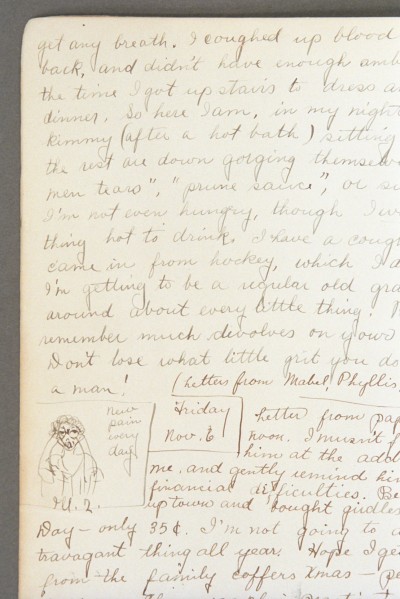 get any breath. I coughed up blood
back, and didn't have enough amb
the time I got up stairs to dress a
dinner. So here I am, in my night
kimmy (after a hot bath) sitting
the rest are down gorging themselve
men tears", "prune sauce", or s
I'm not even hungry, though I w
thing hot to drink. I have a coug
came in from hockey, which I d
I'm getting to be a regular old gra
around about every little thing!
remember much devolves on yours
Don't lose what little grit you do
a man!
(Letters from Mabel, Phyllis
New
pain
every
day
Friday
Nov. 6
Letter from pap
noon. I mustn't
him at the add
me, and gently remind him
financial difficulties. Be
uptown and bought girdles
Day - only 35¢. I'm not going to
travagant thing all year. Hope I ge
from the family coffers Xmas - pe